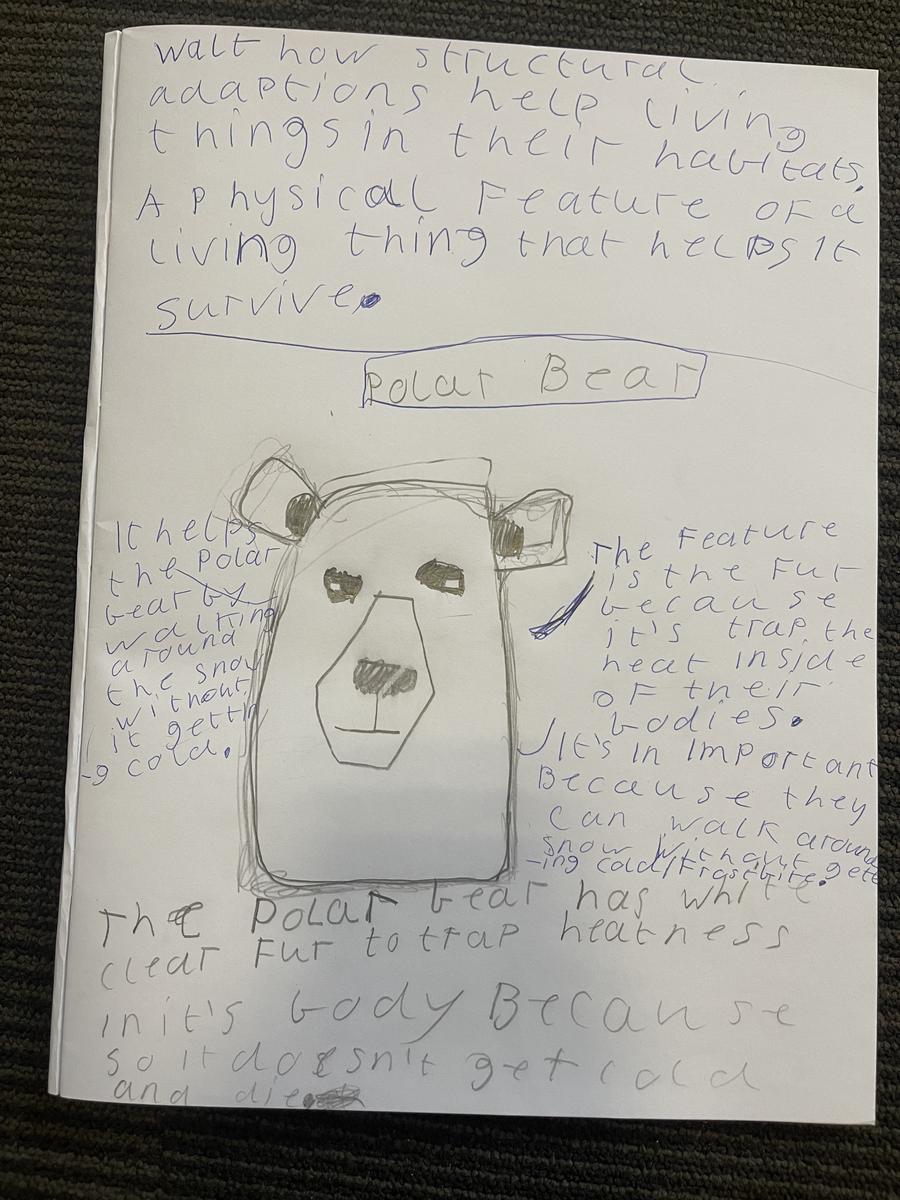 walt how structural
adaptions help living
things in their habitats.
A Physical Feature of a
living thing that helps it
survive.
Polar Bear
It helps
the Polar
bear by
walking
around
the snow
without
it gettin
-g cold.
The Feature
is the Fur
because
it's trap the
heat inside
of their
bodies.
It's in important
Because they
can walk around
snow without gett
-ing cold/Frostbite.
The Polar bear has white
clear Fur to trap heatness
in it's body Because
so it doesn't get cold
and die.